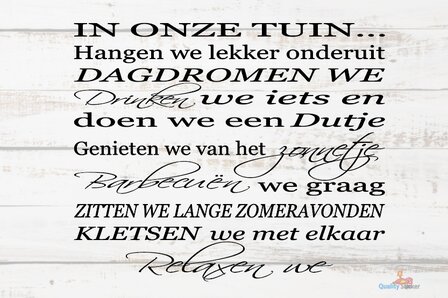 IN ONZE TUIN...
Hangen we lekker onderuit
DAGDROMEN WE
Drinken we iets en
doen we een Dutje
Genieten we van het zonnetje
Barbecuën we graag
ZITTEN WE LANGE ZOMERAVONDEN
KLETSEN we met elkaar
Relaxen we
Quality Sticker